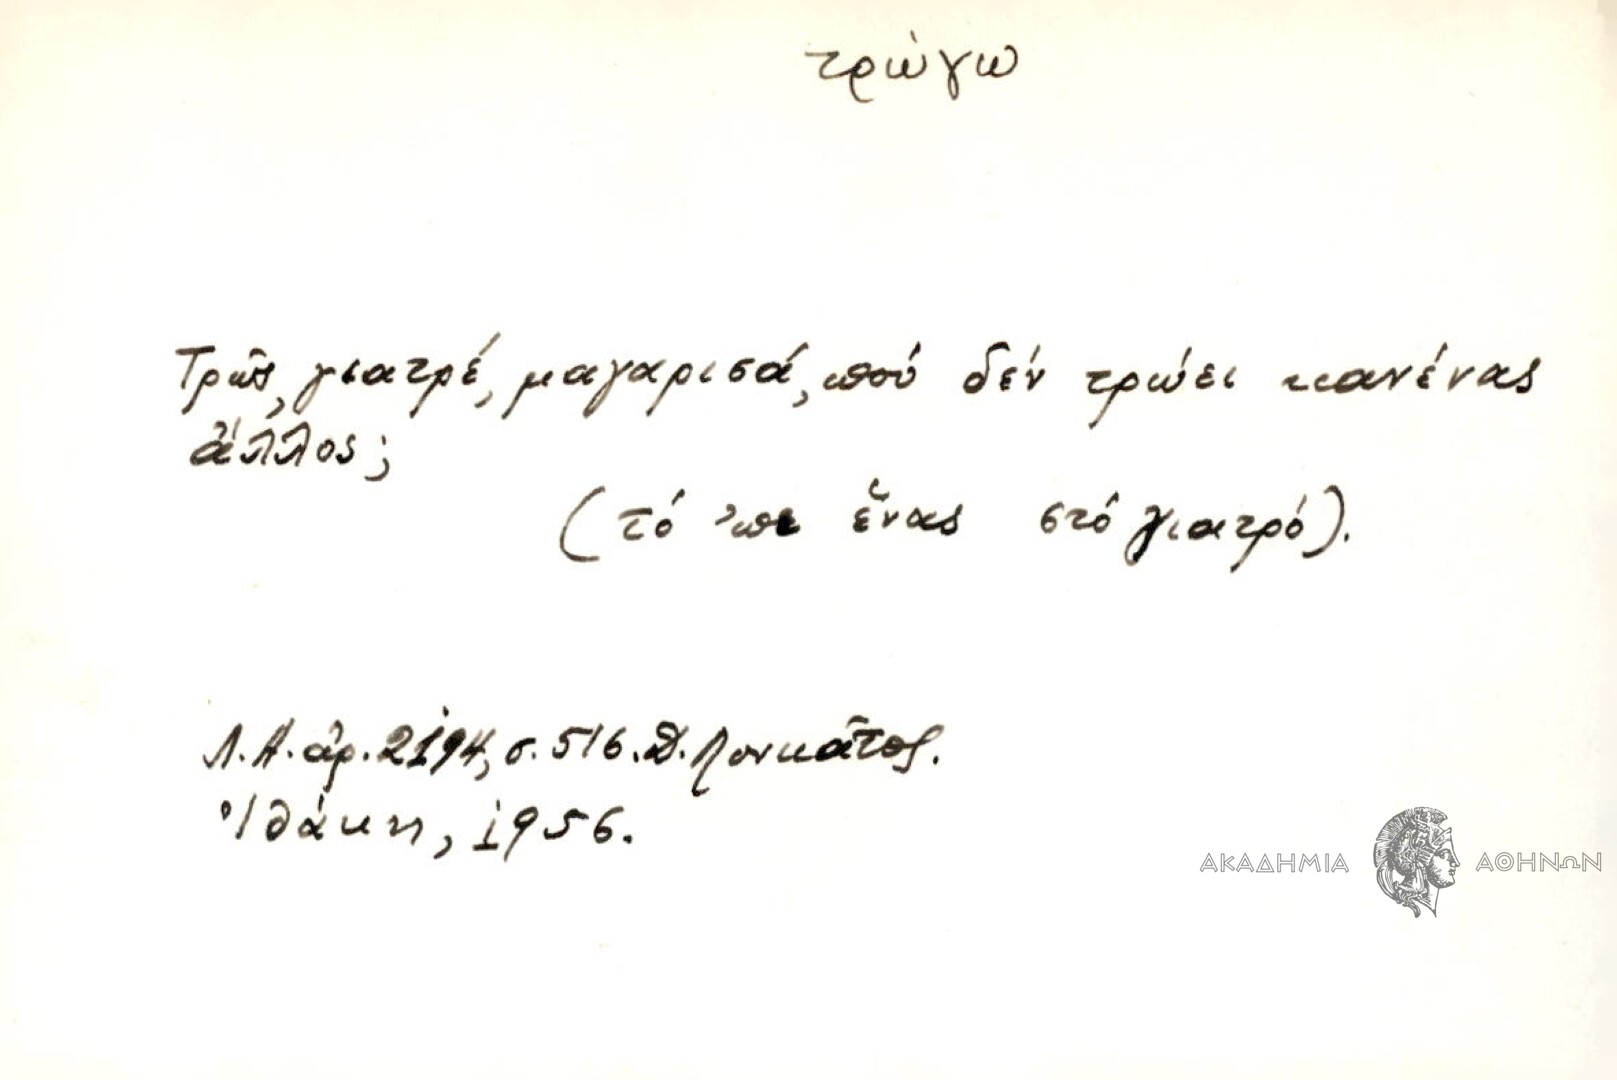 τρώγω
Τρῶς, γιατρέ, μαγαρισά, πού δέν τρώει κανένας
ἄλλος;
(τό 'πε ἕνας στό γιατρό).
Λ.Α. ἀρ. 2194, σ. 516. Δ. Λουκᾶτος.
Ἰθάκη, 1956.
ΑΚΑΔΗΜΙΑ ΑΘΗΝΩΝ